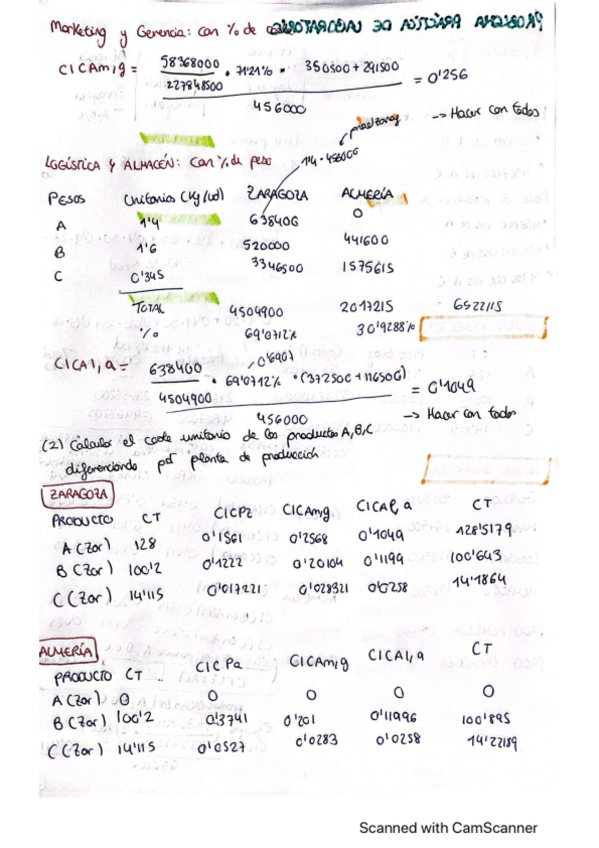 Marketing y Gerencia: con % de
CICAm,g = 58368000 / 227848500 · 71'21% · 350500 + 291500 / 456000 = 0'256
→ Hacer con todos
LOGÍSTICA Y ALMACÉN: Con % de peso
1'4 · 456000
PESOS Unitarios (Kg/ud) ZARAGOZA ALMERÍA
A 1'4 638400 0
B 1'6 520000 441600
C 0'345 3346500 1575615
TOTAL 4504900 2017215 6522115
% 69'0712% 30'9288%
0'6907
CICAl,a = 638400 / 4504900 · 69'0712% · (372500 + 116500) / 456000 = 0'1049
→ Hacer con todos
(2) Calcular el coste unitario de los productos A, B, C
diferenciando por planta de producción
ZARAGOZA
PRODUCTO CT CICPz CICAmg CICAl,a CT
A (Zar) 128 0'1561 0'2568 0'1049 128'5179
B (Zar) 100'2 0'1222 0'20104 0'1199 100'643
C (Zar) 14'115 0'017221 0'028321 0'0258 14'1864
ALMERÍA
PRODUCTO CT CICPa CICAm,g CICAl,a CT
A (Zar) 0 0 0 0 0
B (Zar) 100'2 0'3741 0'201 0'11996 100'895
C (Zar) 14'115 0'0527 0'0283 0'0258 14'22189
Scanned with CamScanner